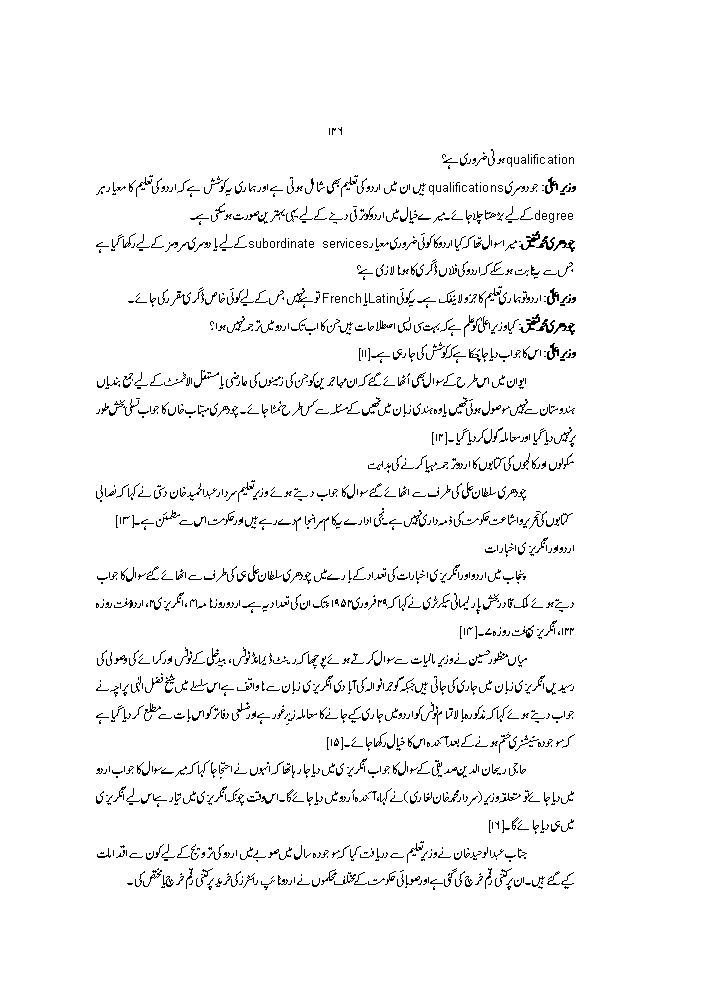 ۱۴۶
qualification ہونی ضروری ہے؟
وزیرِ اعلیٰ: جو دوسری qualifications ہیں ان میں اردو کی تعلیم بھی شامل ہوتی ہے اور ہماری یہ کوشش ہے کہ اردو کی تعلیم کا معیار ہر
degree کے لیے بڑھتا چلا جائے۔ میرے خیال میں اردو کو ترقی دینے کے لیے یہی بہترین صورت ہو سکتی ہے۔
چودھری محمد شفیق: میرا سوال تھا کہ کیا اردو کا کوئی ضروری معیار subordinate services کے لیے یا دوسری سروسز کے لیے رکھا گیا ہے
جس سے یہ ثابت ہو سکے کہ اردو کی فلاں ڈگری کا ہونا لازی ہے؟
وزیرِ اعلیٰ: اردو تو ہماری تعلیم کا جزو لاینفک ہے۔ یہ کوئی Latin یا French تو ہے نہیں جس کے لیے کوئی خاص ڈگری مقرر کی جائے۔
چودھری محمد شفیق: کیا وزیر اعلیٰ کو علم ہے کہ بہت سی ایسی اصطلاحات ہیں جن کا اب تک اردو میں ترجمہ نہیں ہوا؟
وزیرِ اعلیٰ: اس کا جواب دیا جا چکا ہے کہ کوشش کی جا رہی ہے۔[۱۱]
ایوان میں اس طرح کے سوال بھی اُٹھائے گئے کہ ان مہاجرین کو جن کی زمینوں کی عارضی یا مستقل الاٹمنٹ کے لیے جمع بندیاں
ہندوستان سے نہیں موصول ہوئی تھیں یا وہ ہندی زبان میں تھیں کے مسئلہ سے کس طرح نمٹا جائے۔ چودھری مہتاب خاں کا جواب تسلی بخش طور
پر نہیں دیا گیا اور معاملہ گول کر دیا گیا۔[۱۲]
سکولوں اور کالجوں کی کتابوں کا اردو ترجمہ مہیا کرنے کی ہدایت
چودھری سلطان علی کی طرف سے اٹھائے گئے سوال کا جواب دیتے ہوئے وزیر تعلیم سردار عبدالحمید خان دستی نے کہا کہ نصابی
کتابوں کی تحریر و اشاعت حکومت کی ذمہ داری نہیں ہے۔ نجی ادارے یہ کام سرانجام دے رہے ہیں اور حکومت اس سے مطمئن ہے۔[۱۳]
اردو اور انگریزی اخبارات
پنجاب میں اردو اور انگریزی اخبارات کی تعداد کے بارے میں چودھری سلطان علی ہی کی طرف سے اٹھائے گئے سوال کا جواب
دیتے ہوئے ملک قادر بخش پارلیمانی سیکرٹری نے کہا کہ ۲۹ فروری ۱۹۵۲ء تک ان کی تعداد یہ ہے۔ اردو روزنامہ ۴۱، انگریزی ۲، اردو ہفت روزہ
۱۲۲، انگریزی ہفت روزہ ۷۔[۱۴]
میاں منظور حسین نے وزیر مالیات سے سوال کرتے ہوئے پوچھا کہ رینٹ ڈیمانڈ نوٹس، بیدخلی کے نوٹس اور کرائے کی وصولی کی
رسیدیں انگریزی زبان میں جاری کی جاتی ہیں جبکہ گوجرانوالہ کی آبادی انگریزی زبان سے ناواقف ہے اس سلسلے میں شیخ فضل الٰہی پراچہ نے
جواب دیتے ہوئے کہا کہ مذکورہ بالا تمام نوٹس کو اردو میں جاری کیے جانے کا معاملہ زیرِ غور ہے اور ضلعی دفاتر کو اس بات سے مطلع کر دیا گیا ہے
کہ موجودہ سٹیشنری ختم ہونے کے بعد آئندہ اس کا خیال رکھا جائے۔[۱۵]
حاجی ریحان الدین صدیقی کے سوال کا جواب انگریزی میں دیا جا رہا تھا کہ انہوں نے احتجاجاً کہا کہ میرے سوال کا جواب اردو
میں دیا جائے تو متعلقہ وزیر (سردار محمد خان لغاری) نے کہا، آئندہ اُردو میں دیا جائے گا۔ اس وقت چونکہ انگریزی میں تیار ہے اس لیے انگریزی
میں ہی دیا جائے گا۔[۱۶]
جناب عبدالوحید خان نے وزیر تعلیم سے دریافت کیا کہ موجودہ سال میں صوبے میں اردو کی ترویج کے لیے کون سے اقدامات
کیے گئے ہیں۔ ان پر کتنی رقم خرچ کی گئی ہے اور صوبائی حکومت کے مختلف محکموں نے اردو ٹائپ رائٹرز کی خرید پر کتنی رقم خرچ یا مختص کی۔